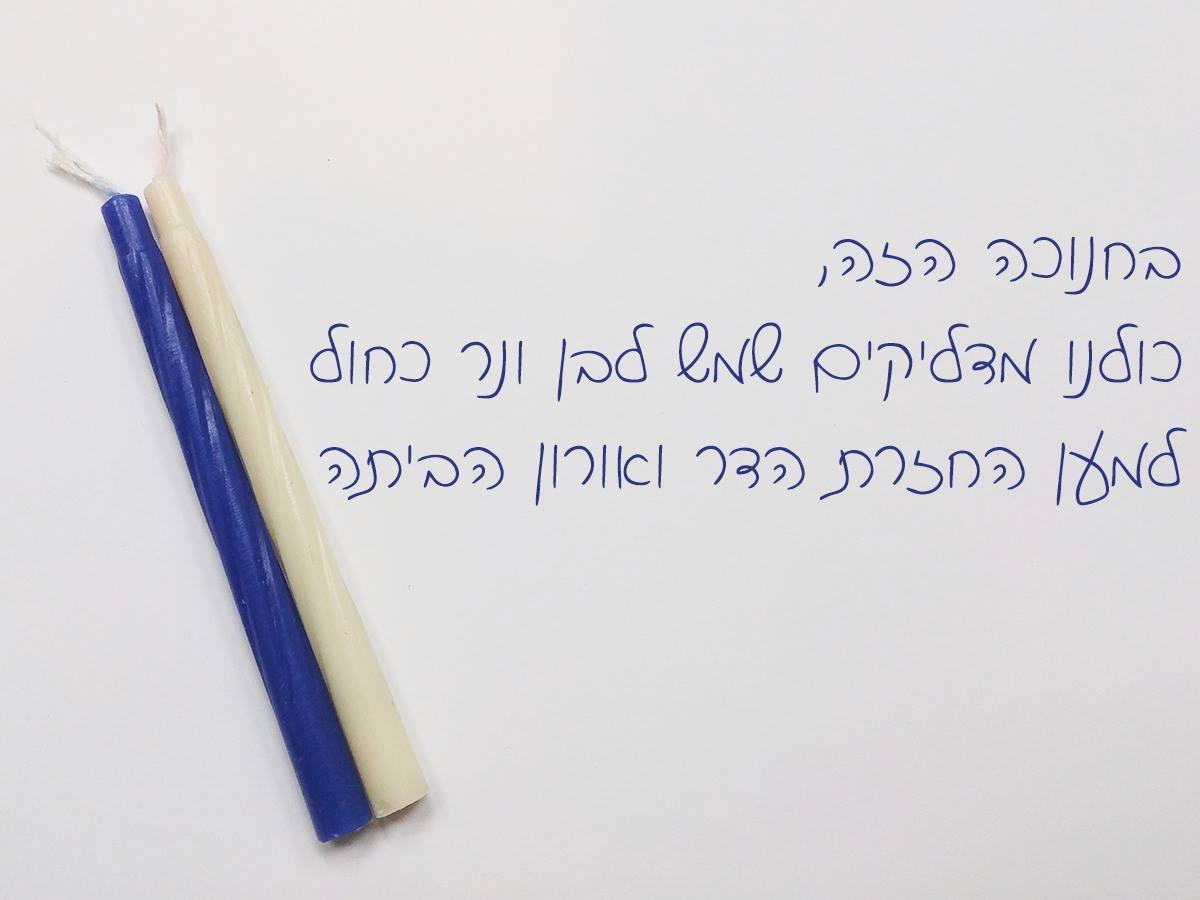 בחנוכה הזה,
כולנו מדליקים שמש לבן ונר כחול
למען החזרת הדר ואורון הביתה